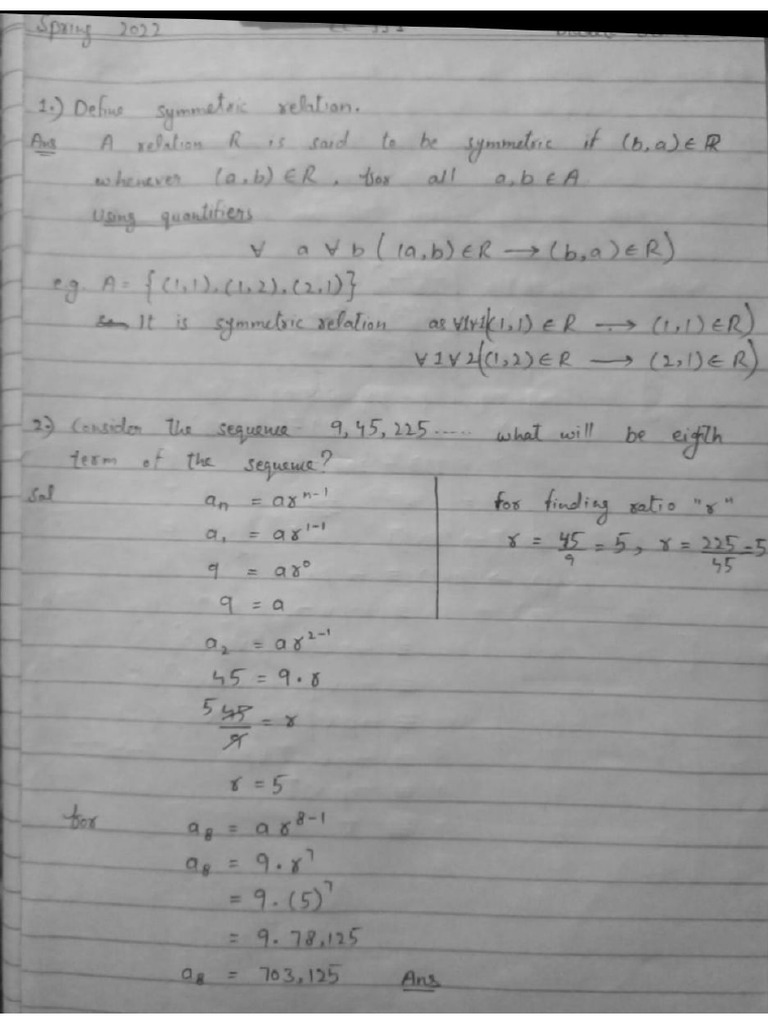 Spring 2022
1.) Define symmetric relation.
Ans A relation R is said to be symmetric if (b,a) ∈ R
whenever (a,b) ∈ R, for all a,b ∈ A
Using quantifiers
∀ a ∀ b ( (a,b) ∈ R → (b,a) ∈ R )
e.g. A = { (1,1), (1,2), (2,1) }
It is symmetric relation as ∀1∀1((1,1) ∈ R → (1,1) ∈ R)
∀1∀2((1,2) ∈ R → (2,1) ∈ R)
2.) Consider the sequence 9, 45, 225 ..... what will be eigth
term of the sequence?
Sol
aₙ = arⁿ⁻¹
a₁ = ar¹⁻¹
9 = ar⁰
9 = a
a₂ = ar²⁻¹
45 = 9 . r
5 45/9 = r
r = 5
for finding ratio "r"
r = 45/9 = 5, r = 225/45 = 5
for a₈ = ar⁸⁻¹
a₈ = 9 . r⁷
= 9 . (5)⁷
= 9 . 78,125
a₈ = 703,125 Ans